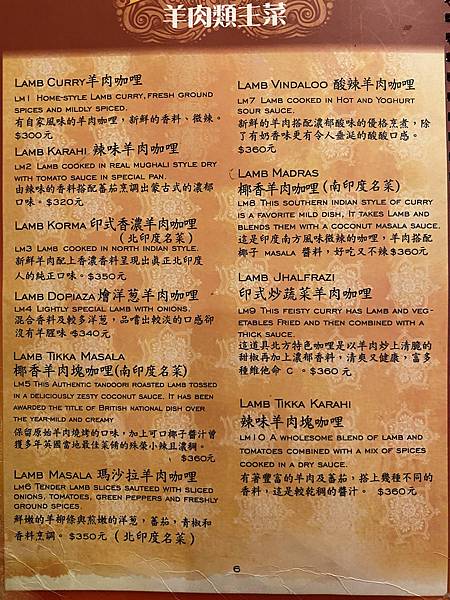 羊肉類主菜
Lamb Curry羊肉咖哩
LM1 Home-style Lamb curry, fresh ground
spices and mildly spiced.
有自家風味的羊肉咖哩，新鮮的香料、微辣。
$300元
Lamb Karahi 辣味羊肉咖哩
LM2 Lamb cooked in real mughali style dry
with tomato sauce in special pan.
由辣味的香料搭配蕃茄烹調出蒙古式的濃郁
口味。$320元
Lamb Korma 印式香濃羊肉咖哩
(北印度名菜)
LM3 Lamb cooked in north Indian style.
新鮮羊肉配上香濃香料呈現出真正北印度
人的純正口味。$350元
Lamb Dopiaza 燴洋葱羊肉咖哩
LM4 Lightly special lamb with onions.
混合香料及較多洋葱，品嚐出較淡的口感卻
沒有羊腥味 $340元
Lamb Tikka Masala
椰香羊肉塊咖哩(南印度名菜)
LM5 This Authentic tandoori roasted lamb tossed
in a deliciously zesty coconut sauce. It has been
awarded the title of British national dish over
the year-mild and creamy
保留原始羊肉燒烤的口味，加上可口椰子醬汁曾
獲多年英國當地最佳菜餚的殊榮小辣且濃稠。
$360元
Lamb Masala 瑪沙拉羊肉咖哩
LM6 Tender lamb slices sauteed with sliced
onions, tomatoes, green peppers and freshly
ground spices.
鮮嫩的羊柳條與煎嫩的洋葱，蕃茄，青椒和
香料烹調。$350元 (北印度名菜)
Lamb Vindaloo 酸辣羊肉咖哩
LM7 Lamb cooked in Hot and Yoghurt
sour sauce.
新鮮的羊肉搭配濃郁酸味的優格烹煮，除
了有奶香味更有令人垂涎的酸酸口感。
$360元
Lamb Madras
椰香羊肉咖哩(南印度名菜)
LM8 This southern indian style of curry
is a favorite mild dish, It takes Lamb and
blends them with a coconut masala sauce.
這是印度南方風味微辣的咖哩，羊肉搭配
椰子 masala 醬料，好吃又不辣$360元
Lamb Jhalfrazi
印式炒蔬菜羊肉咖哩
LM9 This feisty curry has Lamb and veg-
etables Fried and then combined with a
thick sauce.
這道具北方特色咖哩是以羊肉炒上清脆的
甜椒再加上濃郁香料，清爽又健康，富多
種維他命 C 。$360元
Lamb Tikka Karahi
辣味羊肉塊咖哩
LM10 A wholesome blend of lamb and
tomatoes combined with a mix of spices
cooked in a dry sauce.
有著豐富的羊肉及蕃茄，搭上幾種不同的
香料，這是較乾稠的醬汁。 $360元
6